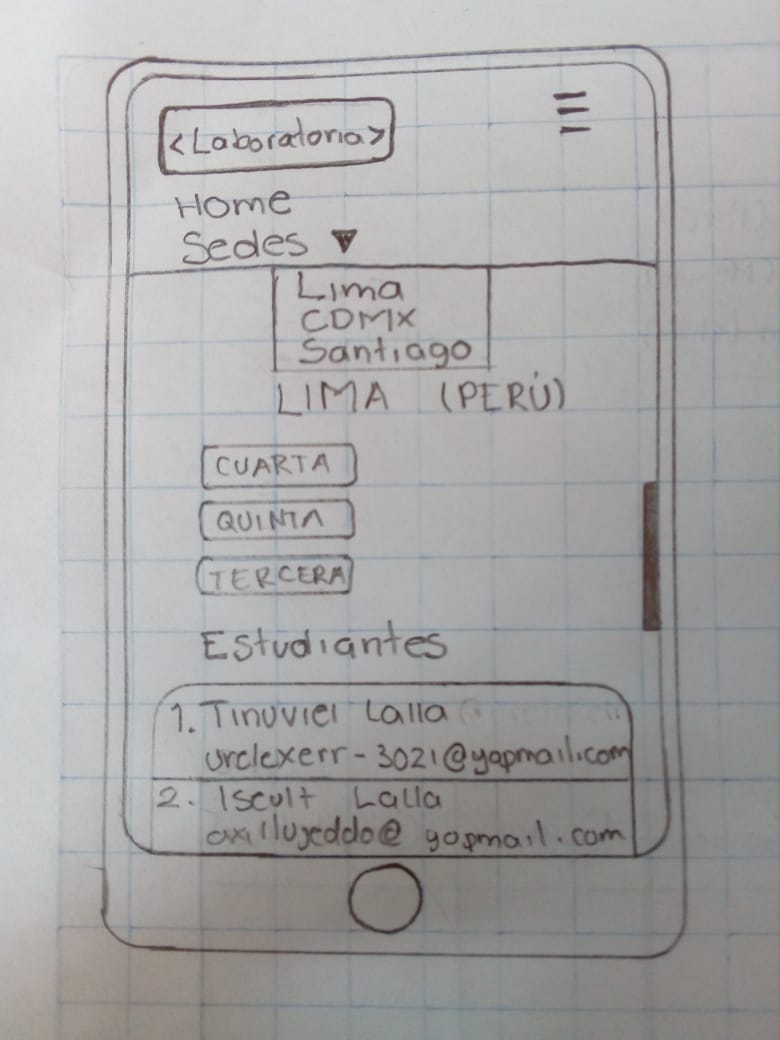 <Laboratoria>
Home
Sedes
Lima
CDMX
Santiago
LIMA (PERÚ)
CUARTA
QUINTA
TERCERA
Estudiantes
1. Tinuviel Lalla
urclexerr-3021@yapmail.com
2. Iseult Lalla
@yopmail.com